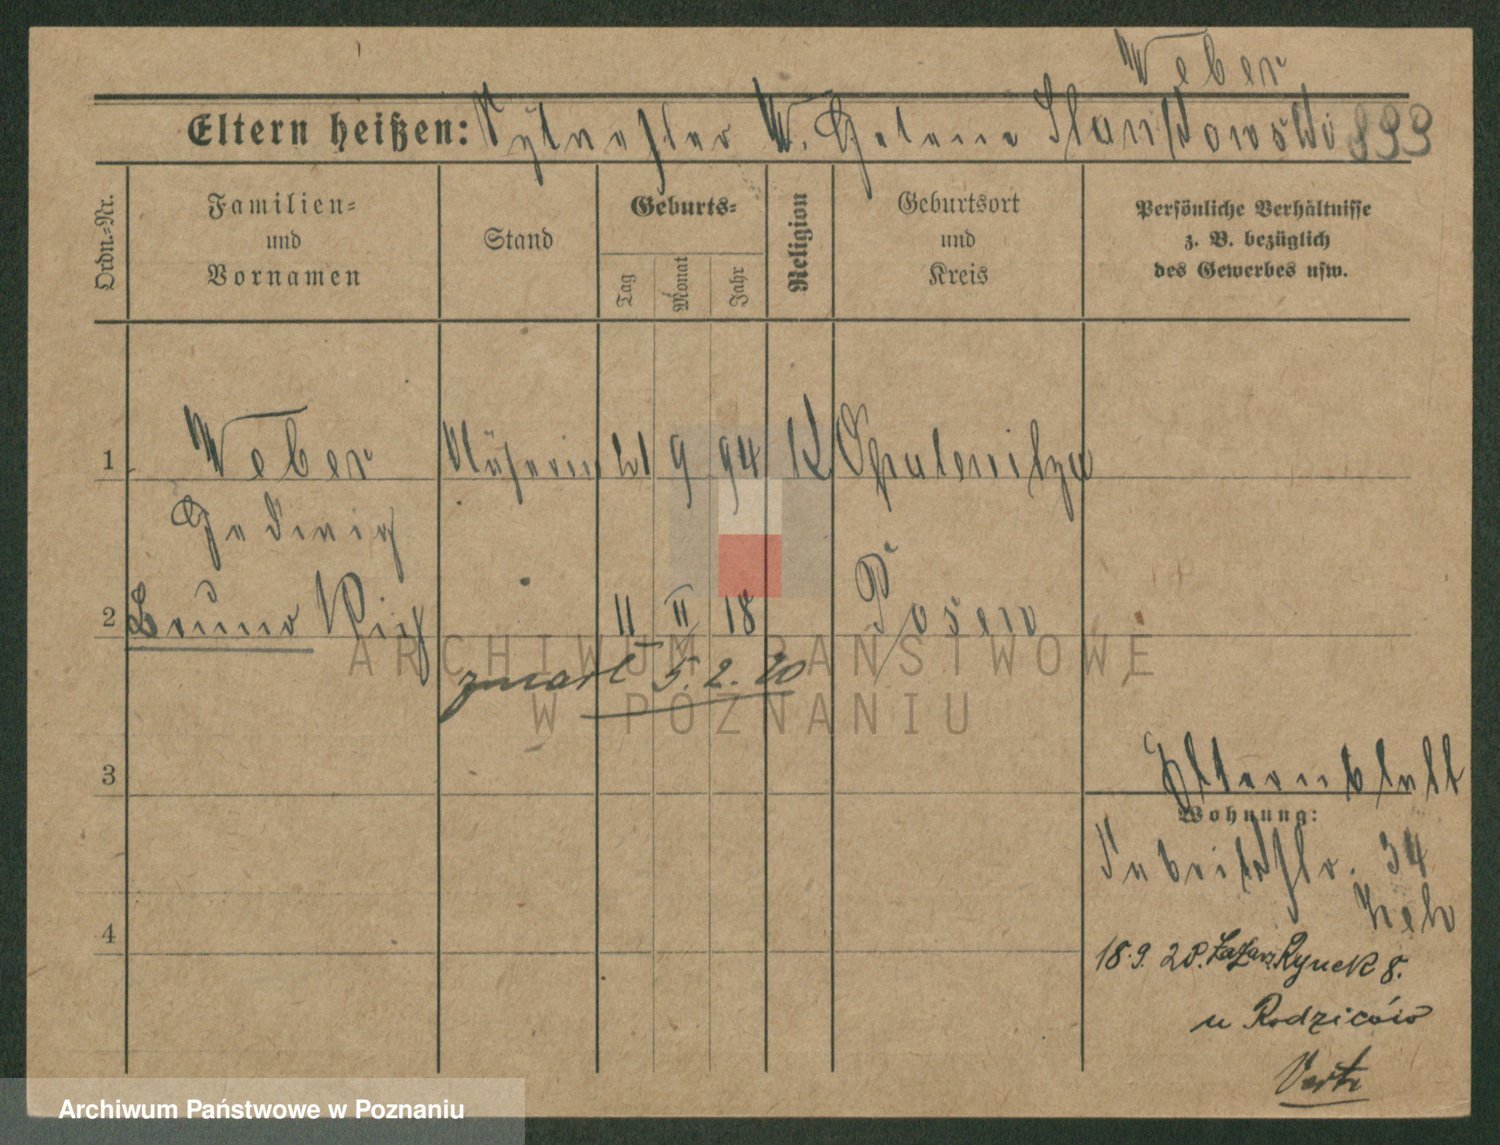 Weber
Eltern heißen: Sylvester W. Helene Stanikowski 899
Ordn.-Nr.
Familien- und Vornamen
Stand
Geburts-
Tag
Monat
Jahr
Religion
Geburtsort und Kreis
Persönliche Verhältnisse z. B. bezüglich des Gewerbes usw.
1 Weber Näherin 21 9 94 K Opalenitza
Hedwig
2 Bruno 11 II 18 Posen
zmarł 5.2.20
3
Elternblatt
Wohnung:
Fabrikstr. 34
4
18.9.20. Łazarz, Rynek 8.
u Rodziców
ARCHIWUM PAŃSTWOWE
W POZNANIU
Archiwum Państwowe w Poznaniu